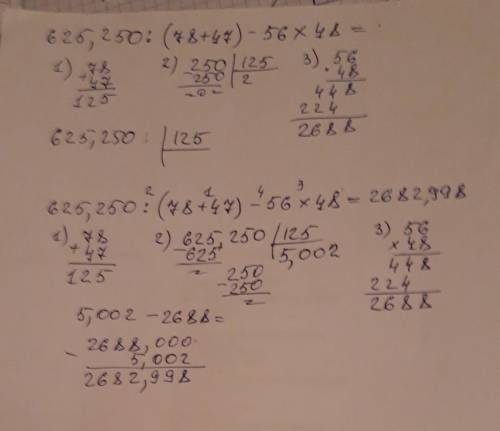 625,250 : (78+47) - 56 × 48 =
1) 78 2) 250 | 125 3) 56
+ 47 - 250 | 2 · 48
125 = 0 = 448
224
2688
625,250 : | 125
2 1 4 3
625,250 : (78+47) - 56 × 48 = 2682,998
1) 78 2) 625,250 | 125 3) 56
+ 47 - 625 | 5,002 × 48
125 = 250 448
- 250 224
= 2688
5,002 - 2688 =
- 2688,000
5,002
2682,998